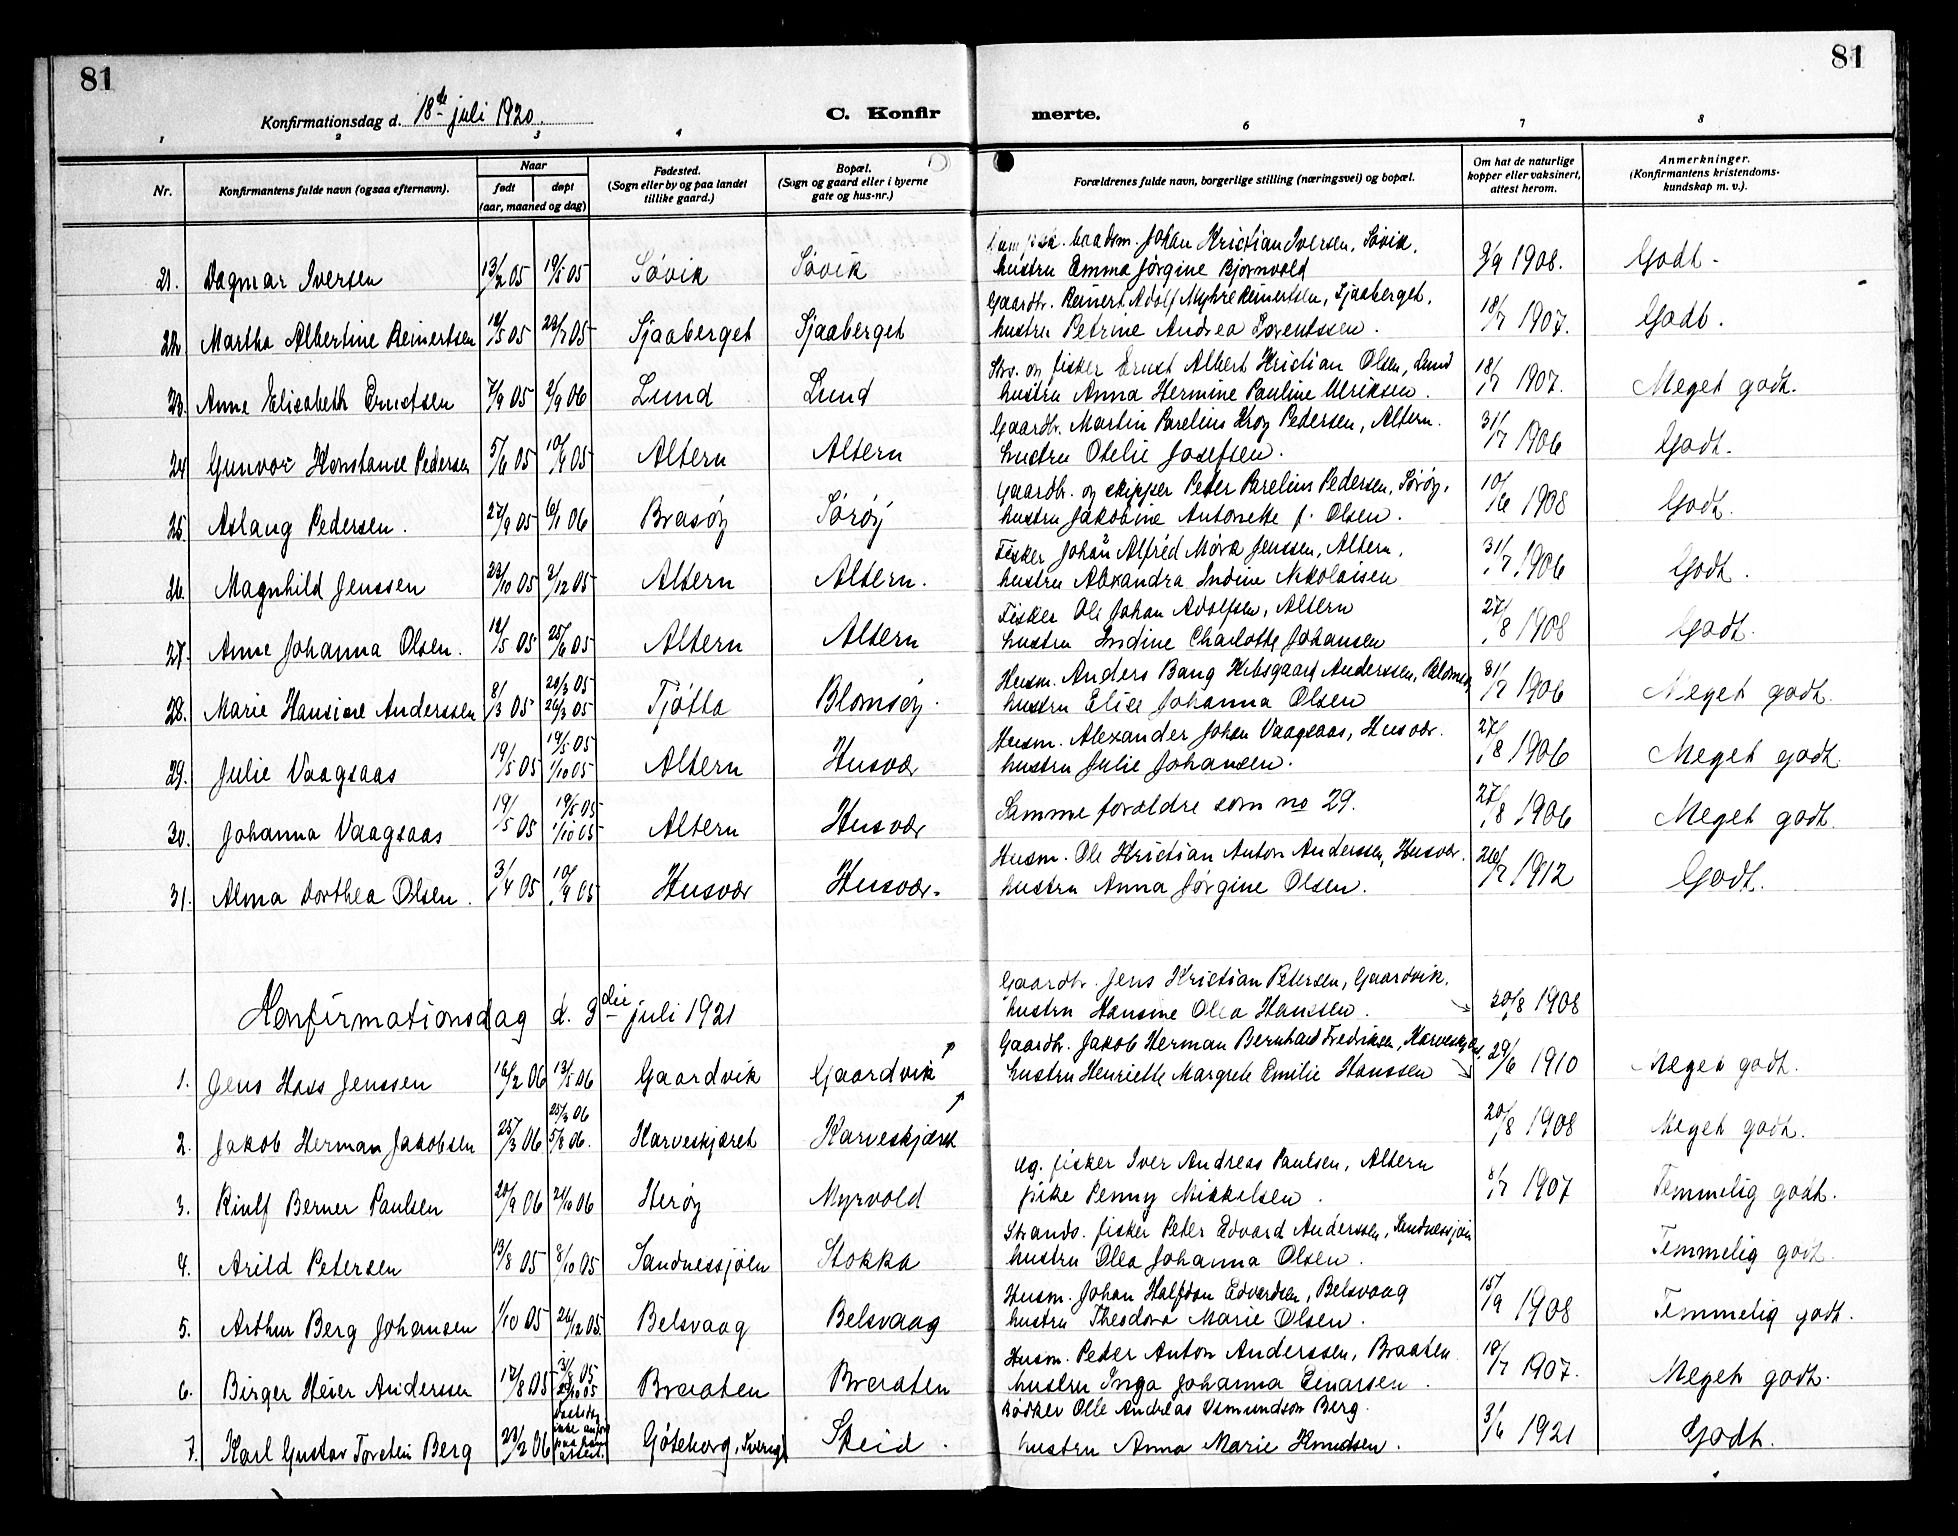 81
81
Konfirmationsdag d. 18de juli 1920.
C. Konfirmerte.
1 2 3 4 6 7 8
Nr.
Konfirmantens fulde navn (ogsaa efternavn).
Naar
født
døpt
(aar, maaned og dag)
Fødested.
(Sogn eller by og paa landet
tillike gaard.)
Bopæl.
(Sogn og gaard eller i byerne
gate og hus-nr.)
Forældrenes fulde navn, borgerlige stilling (næringsvei) og bopæl.
Om hat de naturlige
kopper eller vaksinert,
attest herom.
Anmerkninger.
(Konfirmantens kristendoms-
kundskap m. v.).
baadsm. Johan Kristian Iversen, Søvik.
21. Dagmar Iversen 13/2 05 19/5 05 Søvik Søvik hustru Emma Jørgine Bjornvold 9/9 1908. Godt.
Gaardbr. Reinert Adolf Myhre Reinertsen, Sjaaberget.
22 Martha Albertine Reinertsen 12/5 05 23/7 05 Sjaaberget Sjaaberget hustru Petrine Andrea Lorentssen. 18/7 1907. Godt.
Strs. og fisker Ernst Albert Kristian Olsen, Lund
23. Anne Elisabeth Ernstsen 7/9 05 2/9 06 Lund Lund hustru Anna Hermine Pauline Ulriksen. 18/7 1907. Meget godt.
Gaardbr. Martin Parelius Krog Pedersen, Altern.
24 Gunvor Konstanse Pedersen 5/6 05 10/9 05 Altern Altern hustru Otelie Josefsen. 31/7 1906 Godt.
Gaardbr. og skipper Peter Parelius Pedersen, Sørøy.
25. Aslaug Pedersen. 27/9 05 6/1 06 Brasøy Sørøy hustru Jakobine Antonette f. Olsen. 10/6 1908 Godt.
Fisker Johan Alfred Mørk Jenssen, Altern.
26. Magnhild Jenssen 22/10 05 3/12 05 Altern Altern. hustru Alexandra Indine Nikolaisen 31/7 1906 Godt.
Fisker Ole Johan Adolfsen, Altern
27. Anne Johanna Olsen. 12/5 05 25/6 05 Altern Altern hustru Indine Charlotte Johansen 27/8 1908 Godt.
Husm. Anders Bang Hibsgaard Anderssen, Blomsøy
28. Marie Hansine Anderssen 8/3 05 20/3 05 26/3 05 Tjøtta Blomsøy. hustru Elise Johanna Olsen 31/7 1906 Meget godt.
Husm. Alexander Johan Vaagsaas, Husvær.
29. Julie Vaagsaas 19/5 05 19/5 05 1/10 05 Altern Husvær hustru Julie Johansen. 27/8 1906 Meget godt.
30. Johanna Vaagsaas 19/5 05 19/5 05 1/10 05 Altern Husvær Samme forældre som no 29. 27/8 1906 Meget godt.
Husm. Ole Kristian Anton Anderssen, Husvær.
31. Alma Dorthea Olsen. 3/4 05 10/9 05 Husvær Husvær. hustru Anna Jørgine Olsen. 26/7 1912 Godt.
Konfirmationsdag d. 3die juli 1921
Gaardbr. Jens Kristian Petersen, Gaardvik.
hustru Hansine Olea Hanssen. 20/8 1908
Gaardbr. Jakob Herman Bernhard Fredriksen, Karveskjæret.
1. Jens Hass Jenssen 12/2 06 13/5 06 Gaardvik Gaardvik hustru Henriette Margrete Emilie Hanssen 29/6 1910 Meget godt.
2. Jakob Herman Jakobsen 25/3 06 25/3 06 5/8 06. Karveskjæret Karveskjæret 20/8 1908 Meget godt.
Ug. fisker Iver Andreas Paulsen, Altern
3. Rinlf Berner Paulsen 20/9 06 21/10 06 Herøy Myrvold pike Penny Mikkelsen. 8/7 1907 Temmelig godt.
Strands. fisker Peter Edvard Anderssen, Sandnessjøen
4. Arild Petersen 13/8 05 8/10 05 Sandnessjøen Stokka hustru Olea Johanna Olsen. Temmelig godt.
Husm. Johan Halfdan Edvardsen, Belsvaag
5. Arthur Berg Johansen 1/10 05 26/12 05. Belsvaag Belsvaag hustru Theodora Marie Olsen. 15/9 1908 Temmelig godt.
Husm. Peder Anton Anderssen, Braaten
6. Birger Heier Anderssen 12/8 05 31/8 05 29/10 05 Braaten Braaten hustru Inga Johanna Einarsen. 18/7 1907. Meget godt.
Bødker Olle Andreas Osmundson Berg.
7. Karl Gustav Torstein Berg 23/2 06 ikke paa attest. Gøteborg, Sverige Skeid. hustru Anna Marie Knudsen. 3/6 1921 Godt.